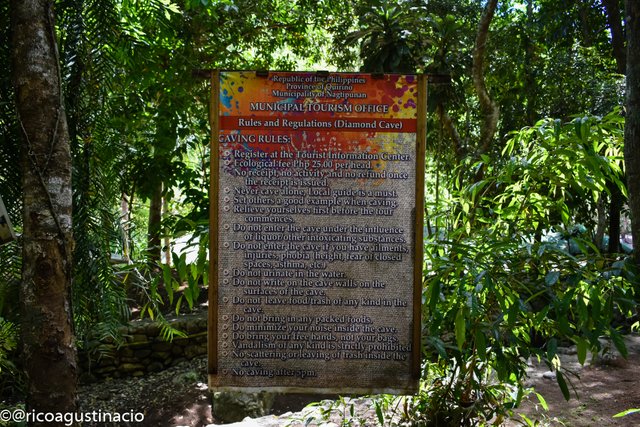 Republic of the Philippines
Province of Quirino
Municipality of Nagtipunan
MUNICIPAL TOURISM OFFICE
Rules and Regulations (Diamond Cave)
CAVING RULES:
Register at the Tourist Information Center.
Ecological fee Php 25.00 per head.
No receipt, no activity and no refund once
the receipt is issued.
Never cave alone. Local guide is a must.
Set others a good example when caving.
Relieve yourselves first before the tour
Do not enter the cave under the influence
of liquor/other intoxicating substances.
Do not enter the cave if you have ailments,
injuries, phobia (height, fear of closed
spaces, asthma, etc.)
Do not urinate in the water.
Do not write on the cave walls on the
surfaces of the cave.
Do not leave food/trash of any kind in the
cave.
Do not bring in any packed foods.
Do minimize your noise inside the cave.
Do bring your free hands, not your bags.
Vandalism of any kind is strictly prohibited
No scattering or leaving of trash inside the
cave.
No caving after 5pm.
©@ricoagustinacio